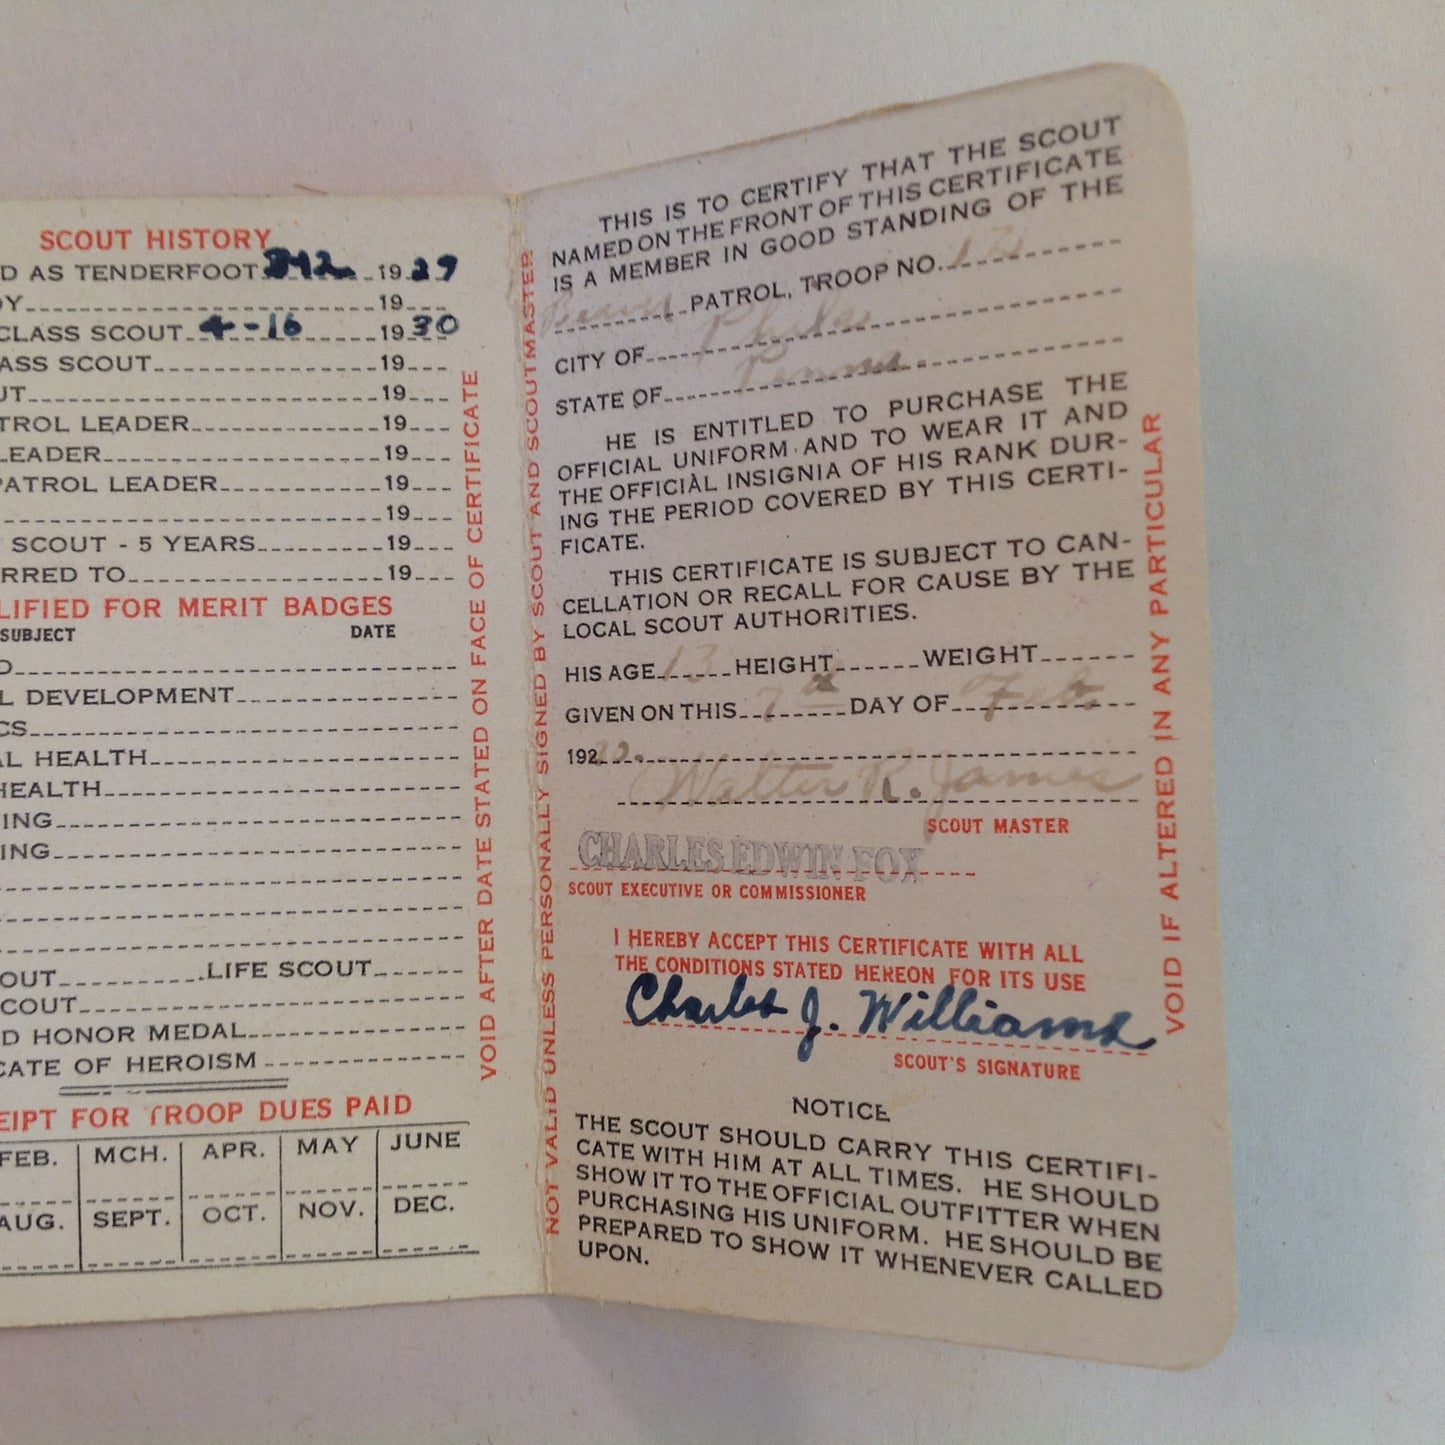 SCOUT HISTORY
D AS TENDERFOOT 19 29
DY 19
CLASS SCOUT 4-16 19 30
ASS SCOUT 19
UT 19
TROL LEADER 19
LEADER 19
PATROL LEADER 19
19
SCOUT - 5 YEARS 19
RRED TO 19
LIFIED FOR MERIT BADGES
SUBJECT DATE
D
L DEVELOPMENT
CS
AL HEALTH
HEALTH
ING
ING
OUT LIFE SCOUT
SCOUT
D HONOR MEDAL
CATE OF HEROISM
EIPT FOR TROOP DUES PAID
FEB. MCH. APR. MAY JUNE
AUG. SEPT. OCT. NOV. DEC.
VOID AFTER DATE STATED ON FACE OF CERTIFICATE
NOT VALID UNLESS PERSONALLY SIGNED BY SCOUT AND SCOUTMASTER
THIS IS TO CERTIFY THAT THE SCOUT
NAMED ON THE FRONT OF THIS CERTIFICATE
IS A MEMBER IN GOOD STANDING OF THE
Beaver PATROL, TROOP NO.
CITY OF Phila
STATE OF Penna.
HE IS ENTITLED TO PURCHASE THE
OFFICIAL UNIFORM AND TO WEAR IT AND
THE OFFICIAL INSIGNIA OF HIS RANK DUR-
ING THE PERIOD COVERED BY THIS CERTI-
FICATE.
THIS CERTIFICATE IS SUBJECT TO CAN-
CELLATION OR RECALL FOR CAUSE BY THE
LOCAL SCOUT AUTHORITIES.
HIS AGE 13 HEIGHT WEIGHT
GIVEN ON THIS 7th DAY OF Feb.
192
Walter R. James
SCOUT MASTER
CHARLES EDWIN FOX
SCOUT EXECUTIVE OR COMMISSIONER
I HEREBY ACCEPT THIS CERTIFICATE WITH ALL
THE CONDITIONS STATED HEREON FOR ITS USE
Charles J. Williams
SCOUT'S SIGNATURE
NOTICE
THE SCOUT SHOULD CARRY THIS CERTIFI-
CATE WITH HIM AT ALL TIMES. HE SHOULD
SHOW IT TO THE OFFICIAL OUTFITTER WHEN
PURCHASING HIS UNIFORM. HE SHOULD BE
PREPARED TO SHOW IT WHENEVER CALLED
UPON.
VOID IF ALTERED IN ANY PARTICULAR